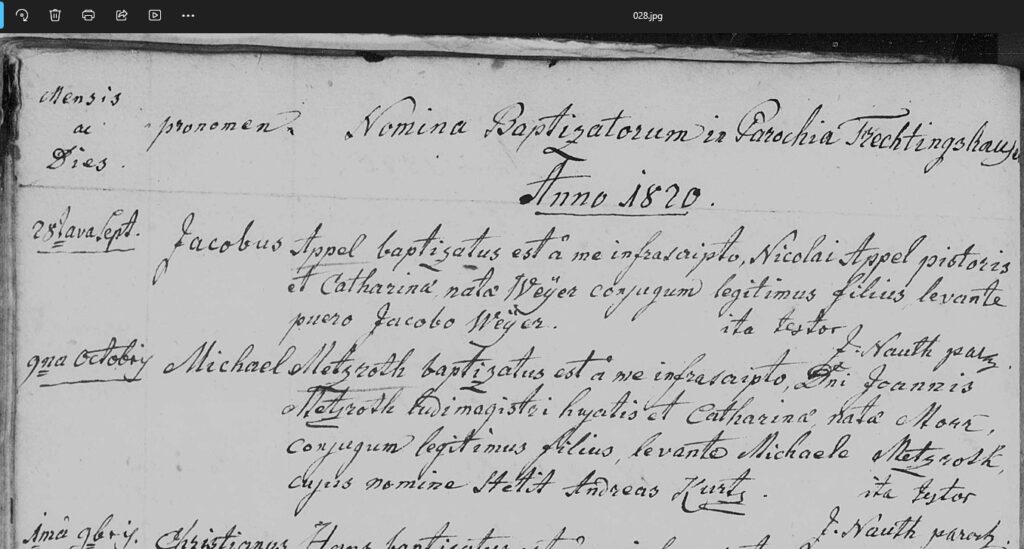 028.jpg
Mensis
ac
Dies.
pronomen. Nomina Baptizatorum in Parochia Trechtingshausen
Anno 1820.
28tava Sept. Jacobus Appel baptizatus est â me infrascripto, Nicolai Appel pistoris
et Catharinæ natæ Weÿer conjugum legitimus filius, levante
puero Jacobo Weÿer. ita testor
J. Nauth paro
9na Octobris Michael Metzroth baptizatus est â me infrascripto, Dni Joannis
Metzroth ludimagistri hyatis et Catharinæ natæ
conjugum legitimus filius, levante Michaele Metzroth,
cujus nomine stetit Andreas Kurtz. ita testor
J. Nauth paroch.
1mâ 9bris. Christianus baptizatus est â me